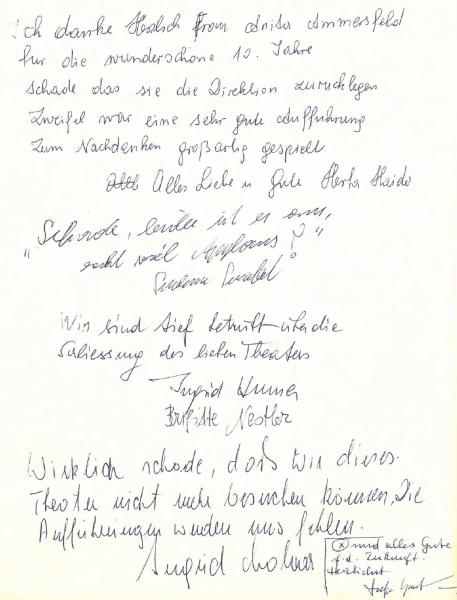 Ich danke Herzlich Frau Anita Ammersfeld
für die wunderschöne 10. Jahre
schade das sie die Direktion zurücklegen
Zweifel war eine sehr gute Aufführung
Zum Nachdenken großartig gespielt
Alles Liebe u Gute Herta Haido
"Schade, leider ist es aus,
recht viel Applaus!"
Wir sind tief betrübt über die
Schliessung des lieben Theaters
Ingrid
Brigitte Nestler
Wirklich schade, dass wir dieses
Theater nicht mehr besuchen können, Die
Aufführungen werden uns fehlen.
Ingrid
und alles Gute
f. d. Zukunft.
Herzlichst